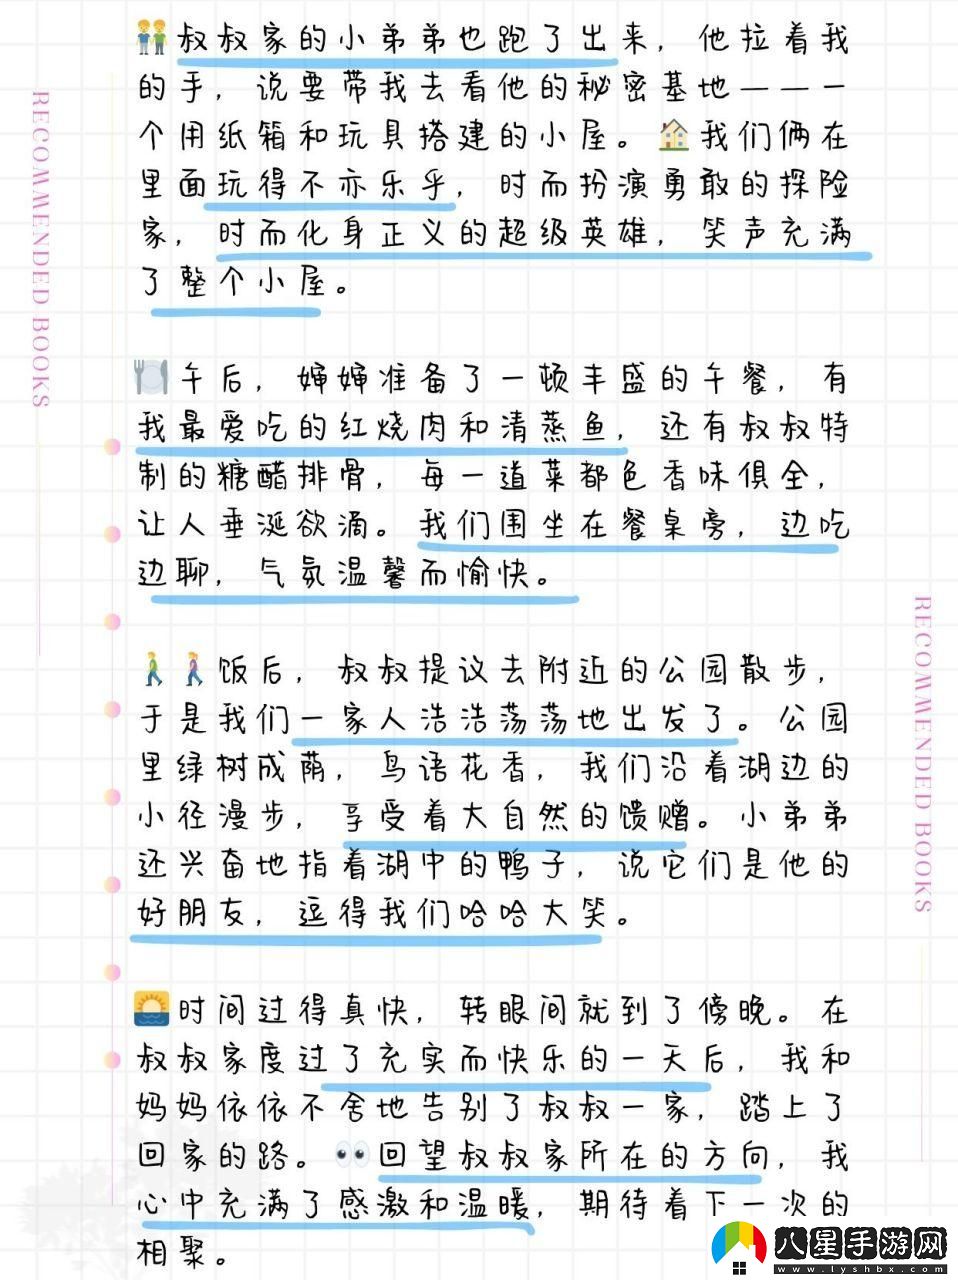 叔叔家的小弟弟也跑了出来，他拉着我
的手，说要带我去看他的秘密基地——一
个用纸箱和玩具搭建的小屋。🏠我们俩在
里面玩得不亦乐乎，时而扮演勇敢的探险
家，时而化身正义的超级英雄，笑声充满
了整个小屋。
RECOMMENDED BOOKS
午后，婶婶准备了一顿丰盛的午餐，有
我最爱吃的红烧肉和清蒸鱼，还有叔叔特
制的糖醋排骨，每一道菜都色香味俱全，
让人垂涎欲滴。我们围坐在餐桌旁，边吃
边聊，气氛温馨而愉快。
饭后，叔叔提议去附近的公园散步，
于是我们一家人浩浩荡荡地出发了。公园
里绿树成荫，鸟语花香，我们沿着湖边的
小径漫步，享受着大自然的馈赠。小弟弟
还兴奋地指着湖中的鸭子，说它们是他的
好朋友，逗得我们哈哈大笑。
RECOMMENDED BOOKS
时间过得真快，转眼间就到了傍晚。在
叔叔家度过了充实而快乐的一天后，我和
妈妈依依不舍地告别了叔叔一家，踏上了
回家的路。👀回望叔叔家所在的方向，我
心中充满了感激和温暖，期待着下一次的
相聚。
八星手游网
www.lyshbx.com